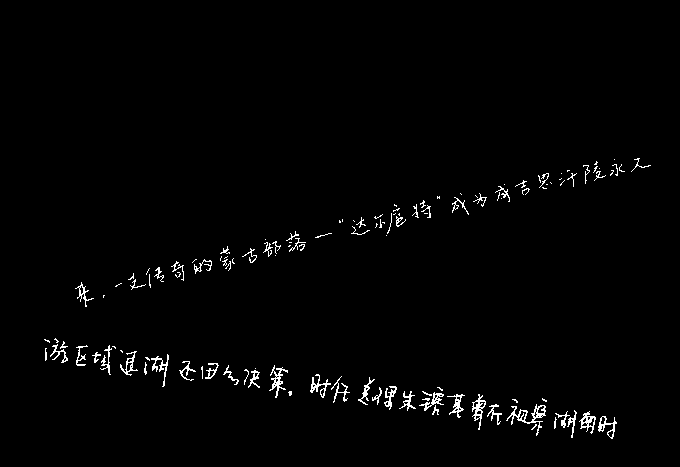 来,一支传奇的蒙古部落—“达尔扈特”成为成吉思汗陵永久
游区域退湖还田的决策。时任总理朱镕基曾在视察湖南时